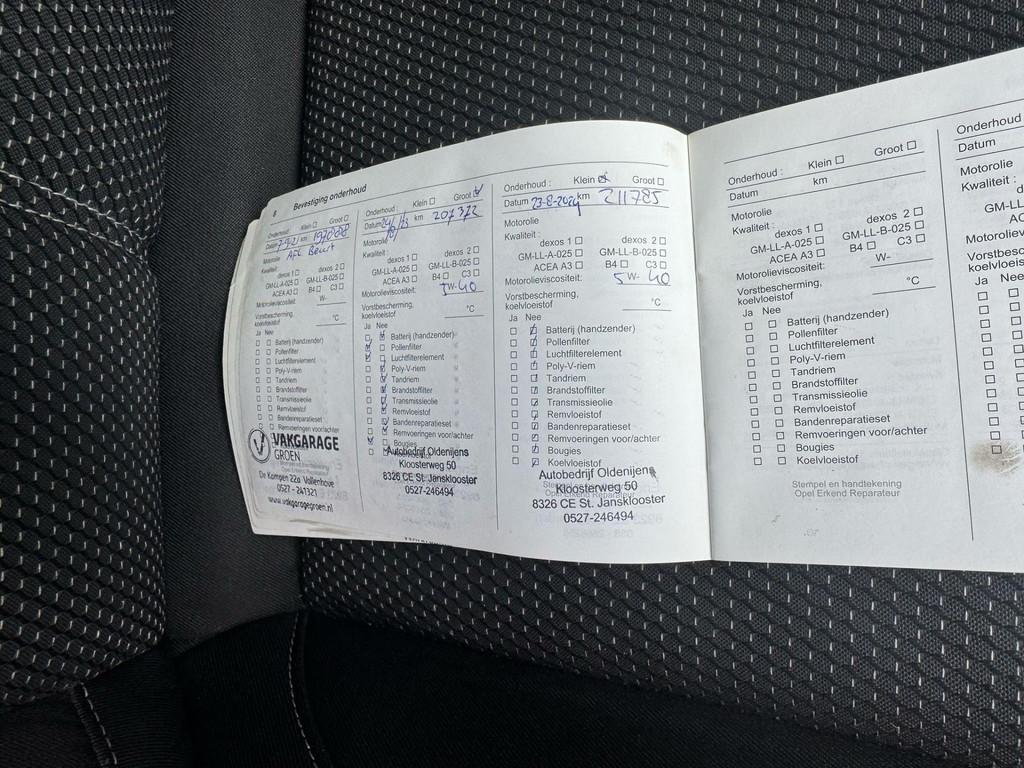 8 Bevestiging onderhoud
Onderhoud: Klein ☐ Groot ☐
Datum 7-9-21 km
Motorolie APK Beurt
Kwaliteit:
dexos 1 ☐ dexos 2 ☐
GM-LL-A-025 ☐ GM-LL-B-025 ☐
ACEA A3 ☐ B4 ☐ C3 ☐
Motorolieviscositeit: W-
Vorstbescherming,
koelvloeistof °C
Ja Nee
☐ ☐ Batterij (handzender)
☐ ☐ Pollenfilter
☐ ☐ Luchtfilterelement
☐ ☐ Poly-V-riem
☐ ☐ Tandriem
☐ ☐ Brandstoffilter
☐ ☐ Transmissieolie
☐ ☐ Remvloeistof
☐ ☐ Bandenreparatieset
☐ ☐ Remvoeringen voor/achter
VAKGARAGE
GROEN
De Kampen 22a Vollenhove
0527 - 241321
www.vakgaragegroen.nl
Onderhoud: Klein ☐ Groot ☑
Datum km 207372
Motorolie
Kwaliteit:
dexos 1 ☐ dexos 2 ☐
GM-LL-A-025 ☐ GM-LL-B-025 ☐
ACEA A3 ☐ B4 ☐ C3 ☐
Motorolieviscositeit: 5W-40
Vorstbescherming,
koelvloeistof °C
Ja Nee
☐ ☑ Batterij (handzender)
☑ ☐ Pollenfilter
☑ ☐ Luchtfilterelement
☐ ☑ Poly-V-riem
☐ ☑ Tandriem
☐ ☑ Brandstoffilter
☐ ☑ Transmissieolie
☐ ☑ Remvloeistof
☐ ☑ Bandenreparatieset
☐ ☑ Remvoeringen voor/achter
☑ ☐ Bougies
Autobedrijf Oldenijens
Kloosterweg 50
8326 CE St. Jansklooster
0527-246494
Onderhoud : Klein ☑ Groot ☐
Datum 23-8-2024 km 211785
Motorolie
Kwaliteit :
dexos 1 ☐ dexos 2 ☐
GM-LL-A-025 ☐ GM-LL-B-025 ☐
ACEA A3 ☐ B4 ☐ C3 ☐
Motorolieviscositeit: 5W-40
Vorstbescherming,
koelvloeistof °C
Ja Nee
☐ ☑ Batterij (handzender)
☐ ☑ Pollenfilter
☐ ☑ Luchtfilterelement
☐ ☑ Poly-V-riem
☐ ☑ Tandriem
☐ ☑ Brandstoffilter
☐ ☑ Transmissieolie
☐ ☑ Remvloeistof
☐ ☑ Bandenreparatieset
☐ ☑ Remvoeringen voor/achter
☐ ☑ Bougies
☐ ☑ Koelvloeistof
Autobedrijf Oldenijens
Kloosterweg 50
Opel Erkend Reparateur
8326 CE St. Jansklooster
0527-246494
Onderhoud : Klein ☐ Groot ☐
Datum km
Motorolie
Kwaliteit :
dexos 1 ☐ dexos 2 ☐
GM-LL-A-025 ☐ GM-LL-B-025 ☐
ACEA A3 ☐ B4 ☐ C3 ☐
Motorolieviscositeit: W-
Vorstbescherming,
koelvloeistof °C
Ja Nee
☐ ☐ Batterij (handzender)
☐ ☐ Pollenfilter
☐ ☐ Luchtfilterelement
☐ ☐ Poly-V-riem
☐ ☐ Tandriem
☐ ☐ Brandstoffilter
☐ ☐ Transmissieolie
☐ ☐ Remvloeistof
☐ ☐ Bandenreparatieset
☐ ☐ Remvoeringen voor/achter
☐ ☐ Bougies
☐ ☐ Koelvloeistof
Stempel en handtekening
Opel Erkend Reparateur
Onderhoud
Datum
Motorolie
Kwaliteit :
GM-LL
AC
Motoroliev
Vorstbesche
koelvloeistof
Ja Nee